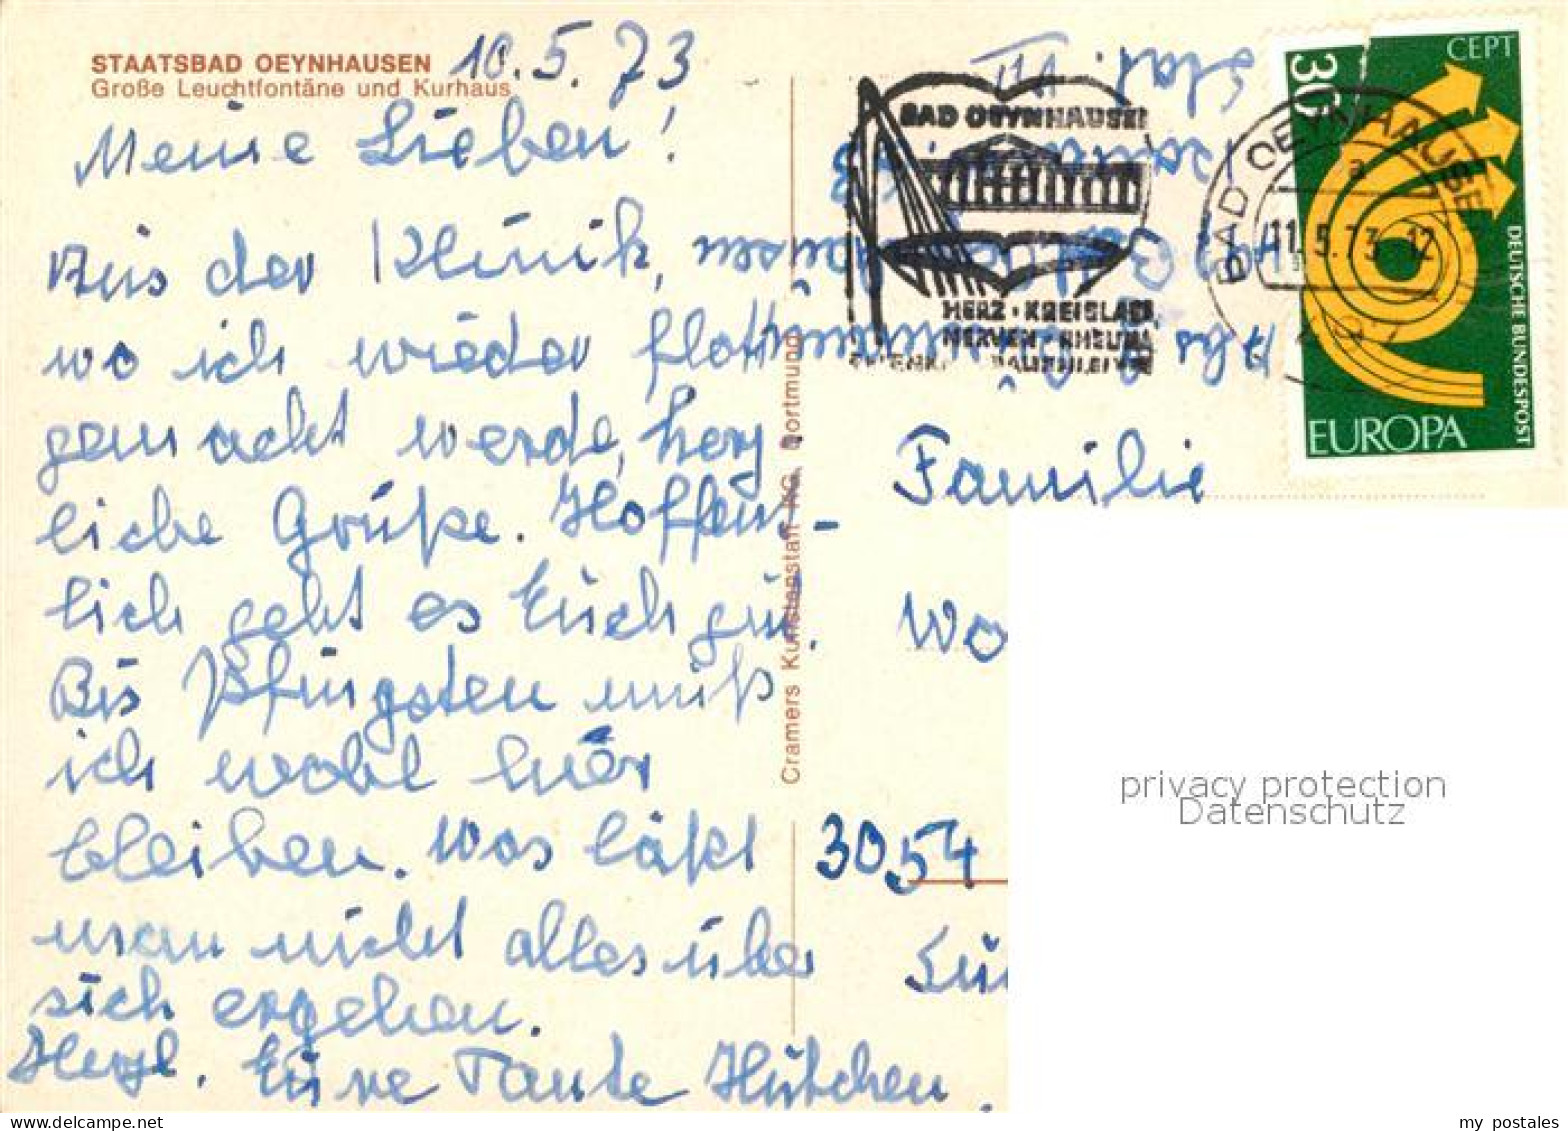 STAATSBAD OEYNHAUSEN
Große Leuchtfontäne und Kurhaus
10.5.73
Meine Lieben!
Aus der Klinik,
wo ich wieder flott
gemacht werde, herz-
liche Grüße. Hoffent-
lich geht es Euch gut.
Bis Pfingsten muß
ich wohl hier
bleiben. Was läßt
man nicht alles über
sich ergehen.
Herzl. Eure Tante Hütchen.
Cramers Kunstanstalt KG, Dortmund
Stat. VII
Abs.
BAD OEYNHAUSEN
HERZ · KREISLAUF
NERVEN · RHEUMA
FRAUENLEIDEN
BAD OEYNHAUSEN
a
11.5.73-12
30
CEPT
DEUTSCHE BUNDESPOST
EUROPA
Familie
Wo
3054
privacy protection
Datenschutz
my postales